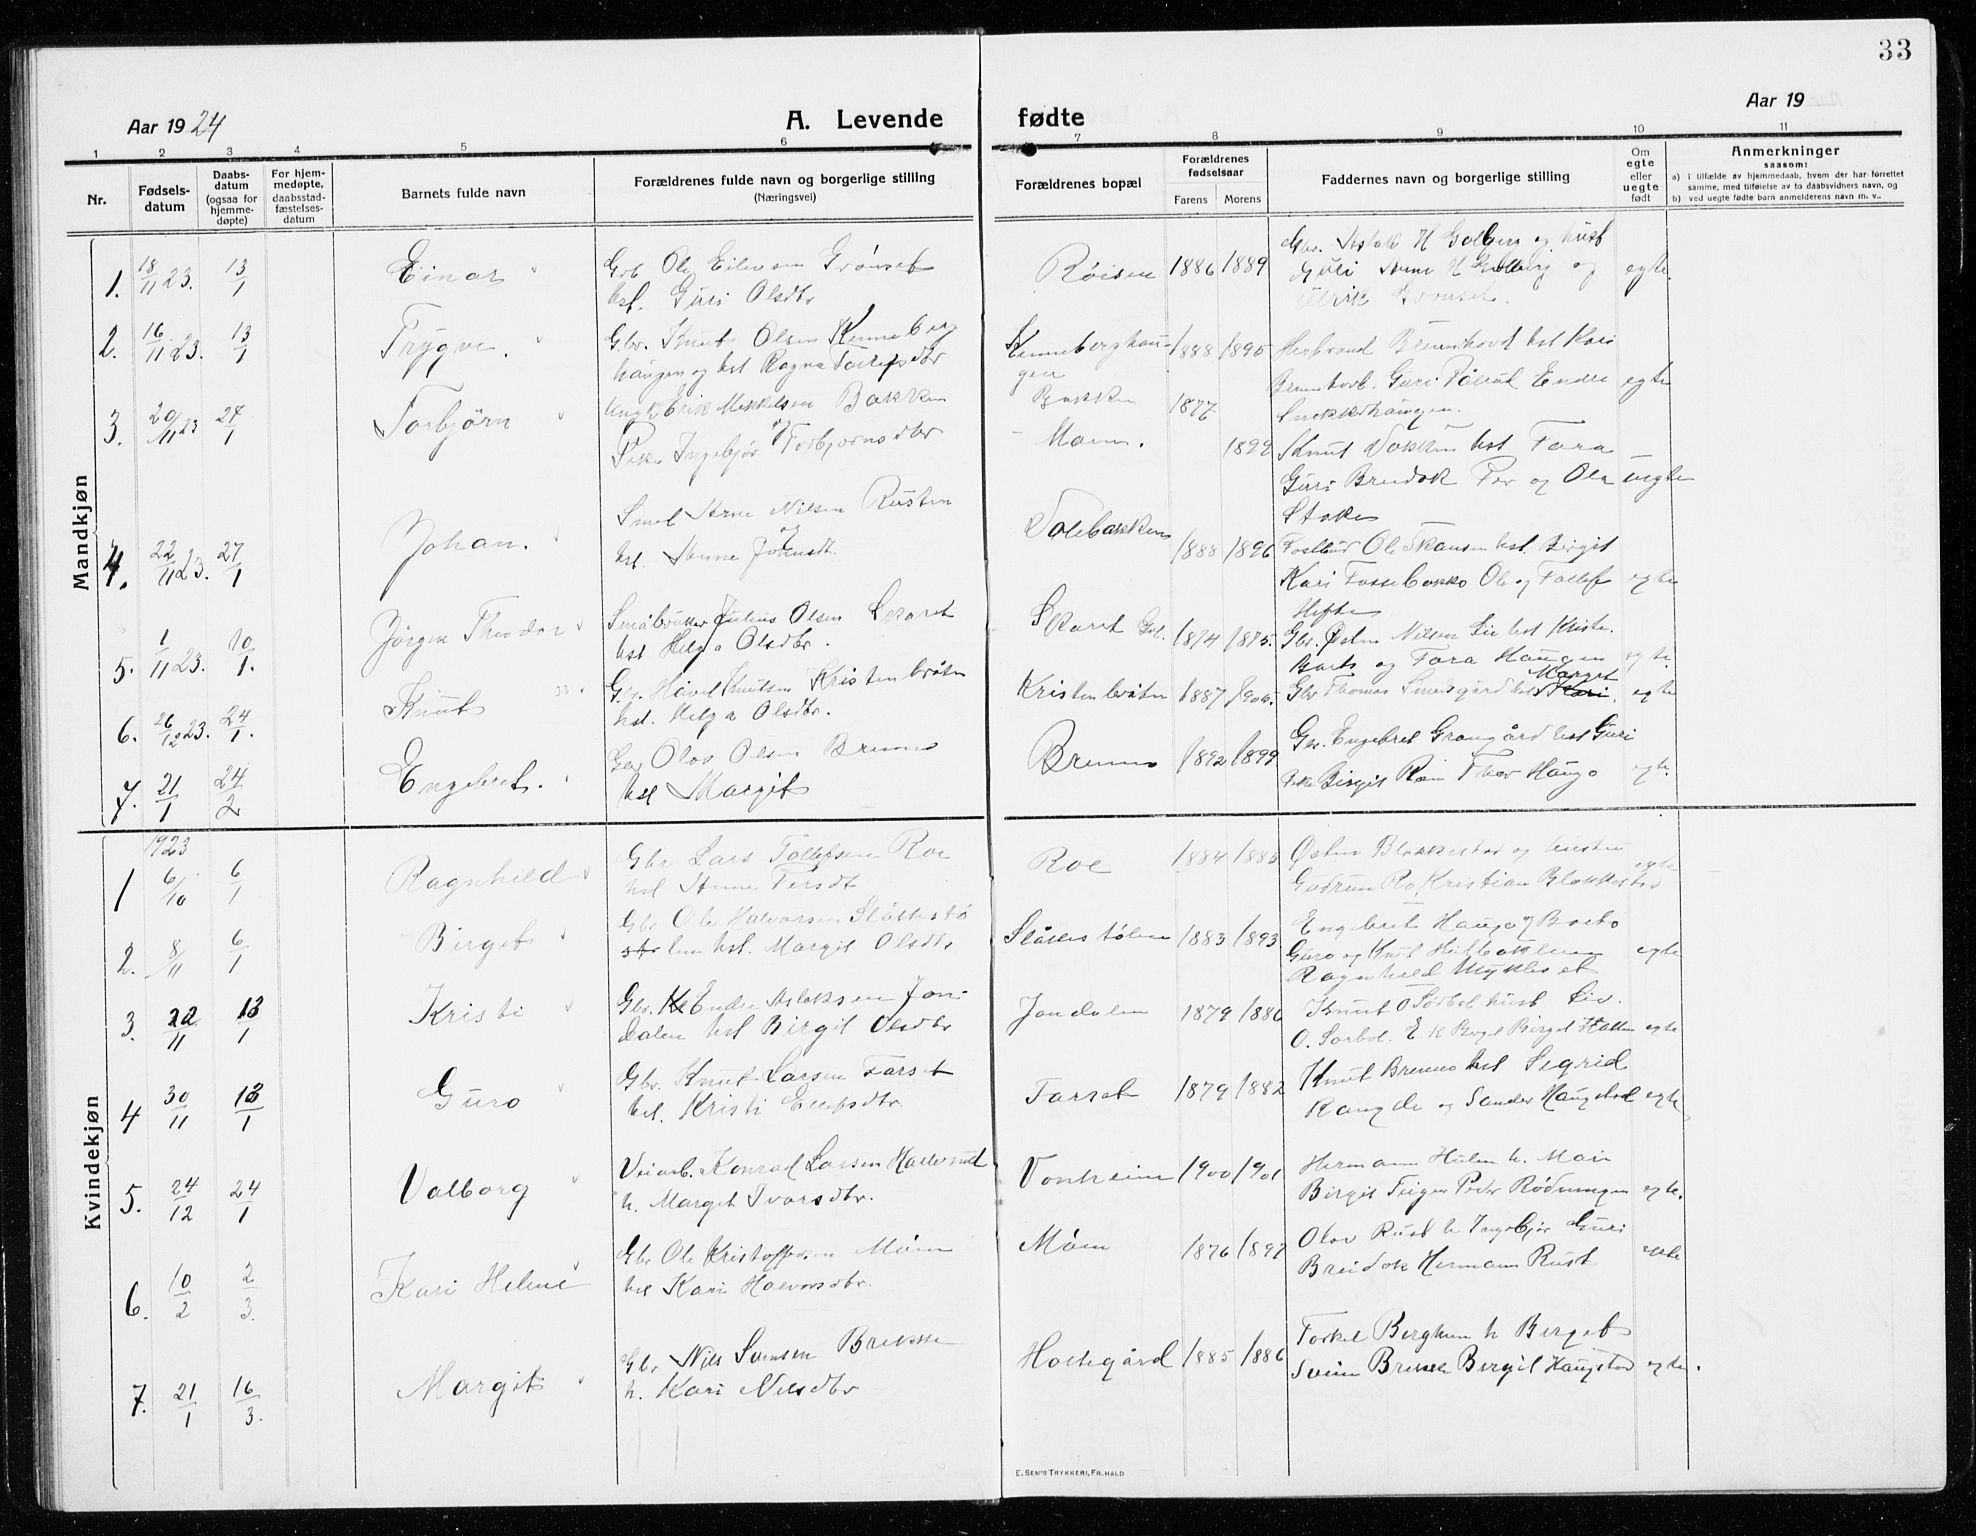 33
Aar 1924
A. Levende fødte
Aar 19
1 2 3 4 5 6 7 8 9 10 11
Nr.
Fødsels-
datum
Daabs-
datum
(ogsaa for
hjemme-
døpte)
For hjem-
medøpte,
daabsstad-
fæstelses-
datum
Barnets fulde navn
Forældrenes fulde navn og borgerlige stilling
(Næringsvei)
Forældrenes bopæl
Forældrenes
fødselsaar
Farens Morens
Faddernes navn og borgerlige stilling
Om
egte
eller
uegte
født
Anmerkninger
saasom:
a) i tilfælde av hjemmedaab, hvem der har forrettet
samme, med tilføielse av to daabsvidners navn, og
b) ved uegte fødte barn anmelderens navn m. v..
Mandkjøn
1. 18/11 23. 13/1 Einar
Gbr Ole Eilevsen Grønset
hst. Guri Olsdtr
Røisen 1886 1889
Gbr. Aslak H Golberg og hust
Guri Arne H Golberg og
Ulrik Grønset. egte.
2. 16/11 23. 13/1 Trygve.
Gbr. Knut Olsen Kenneberg
haugen og hst Ragna Tollefsdtr
Kenneberghau-
gen 1888 1895
Herbrand Brennhovd hst Kari
Brennhovd. Guri Endre egte
haugen.
3. 20/11 23 27/1 Torbjørn
Ungk Erik Mikkelsen Bakken
og
Pike Ingebjør Torbjørnsdtr
Bakken 1877
Moen. 1899
Knut Vokken hst Tora
Guri Breidok Per og Ola uegte
Stake
4. 22/11 23. 27/1 Johan.
Arne Nilsen Rusten
og
hst. Anne
1888 1896
Postbud Ole Skansen hst. Birgit
Kari Fossebakko Ole og Tollef egte
Hefte
5. 1/11 23. 10/1. Jørgen Theodor
Småbruker Julius Olsen Skaret
hst Helga Olsdtr.
Skaret Gol. 1874 1875.
Gbr. Østen Nilsen Lie hst Kristi.
og Tora Haugen egte.
6. 26/12 23. 24/1. Knut
Gbr. Håvel Knutsen Kristenbråten
hst. Helga Olsdtr.
Kristenbråten 1887
Margit
Gbr Thomas Smedsgård hst Kari. egte
7. 21/1 24/2 Engebret.
Gbr Olav Olsen Brenno
hst Margit
Brenno 1892 1899
Gbr. Engebret Grangård hst Guri
Pike Birgit Haugo egte.
Kvindekjøn
1923
1 6/10 6/1 Ragnhild
Gbr Lars Tollefsen Roe
hst Anne Persdt
Roe 1884 1885
Østen Blakkestad og hustru
Gudrun Ro Kristian Blakkestad egte
2. 8/11 6/1 Birget
Gbr Ole Halvorsen Slåttestø
len hst. Margit Olsdtr
Slåttestølen 1883 1893
Engebret Haugo og
Guro og Knut
Ragnhild Mykleset egte
3. 22/11 13/1 Kristi
Gbr. Endre Aslaksen Jon-
dalen hst Birgit Olsdtr
Jondalen 1879 1886
Knut O Sørbøl hust Liv.
O. Sørbøl. E K Birgit Hatten egte
4 30/11 13/1 Guro
Gbr. Knut Larsen Farset
hst. Kristi Ellefsdtr.
Farset 1879 1882
Knut Brenno hst Segrid
og Sander Haugstad egte
5. 24/12 24/1 Valborg
Veiarb. Konrad Larsen
h. Margit Ivarsdtr.
Vonheim 1900 1901
Hermann Hulen h. Mari
Birgit Teigen Peder Rødningen egte.
6. 10/2 2/3. Kari Helene
Gbr Ole Kristoffersen Moen
hst Kari Halvorsdtr.
Moen 1876 1897
Olav Rust h Ingebjør Guri
Breidok Hermann Rust egte
7. 21/1 16/3. Margit
Gbr Nils Svensen
h. Kari Nilsdtr
Holtegård 1885 1886
Torkel Berghum h Birget
Svein Birgit Haugstad egte.
E. SEM'S TRYKKERI, FR.HALD